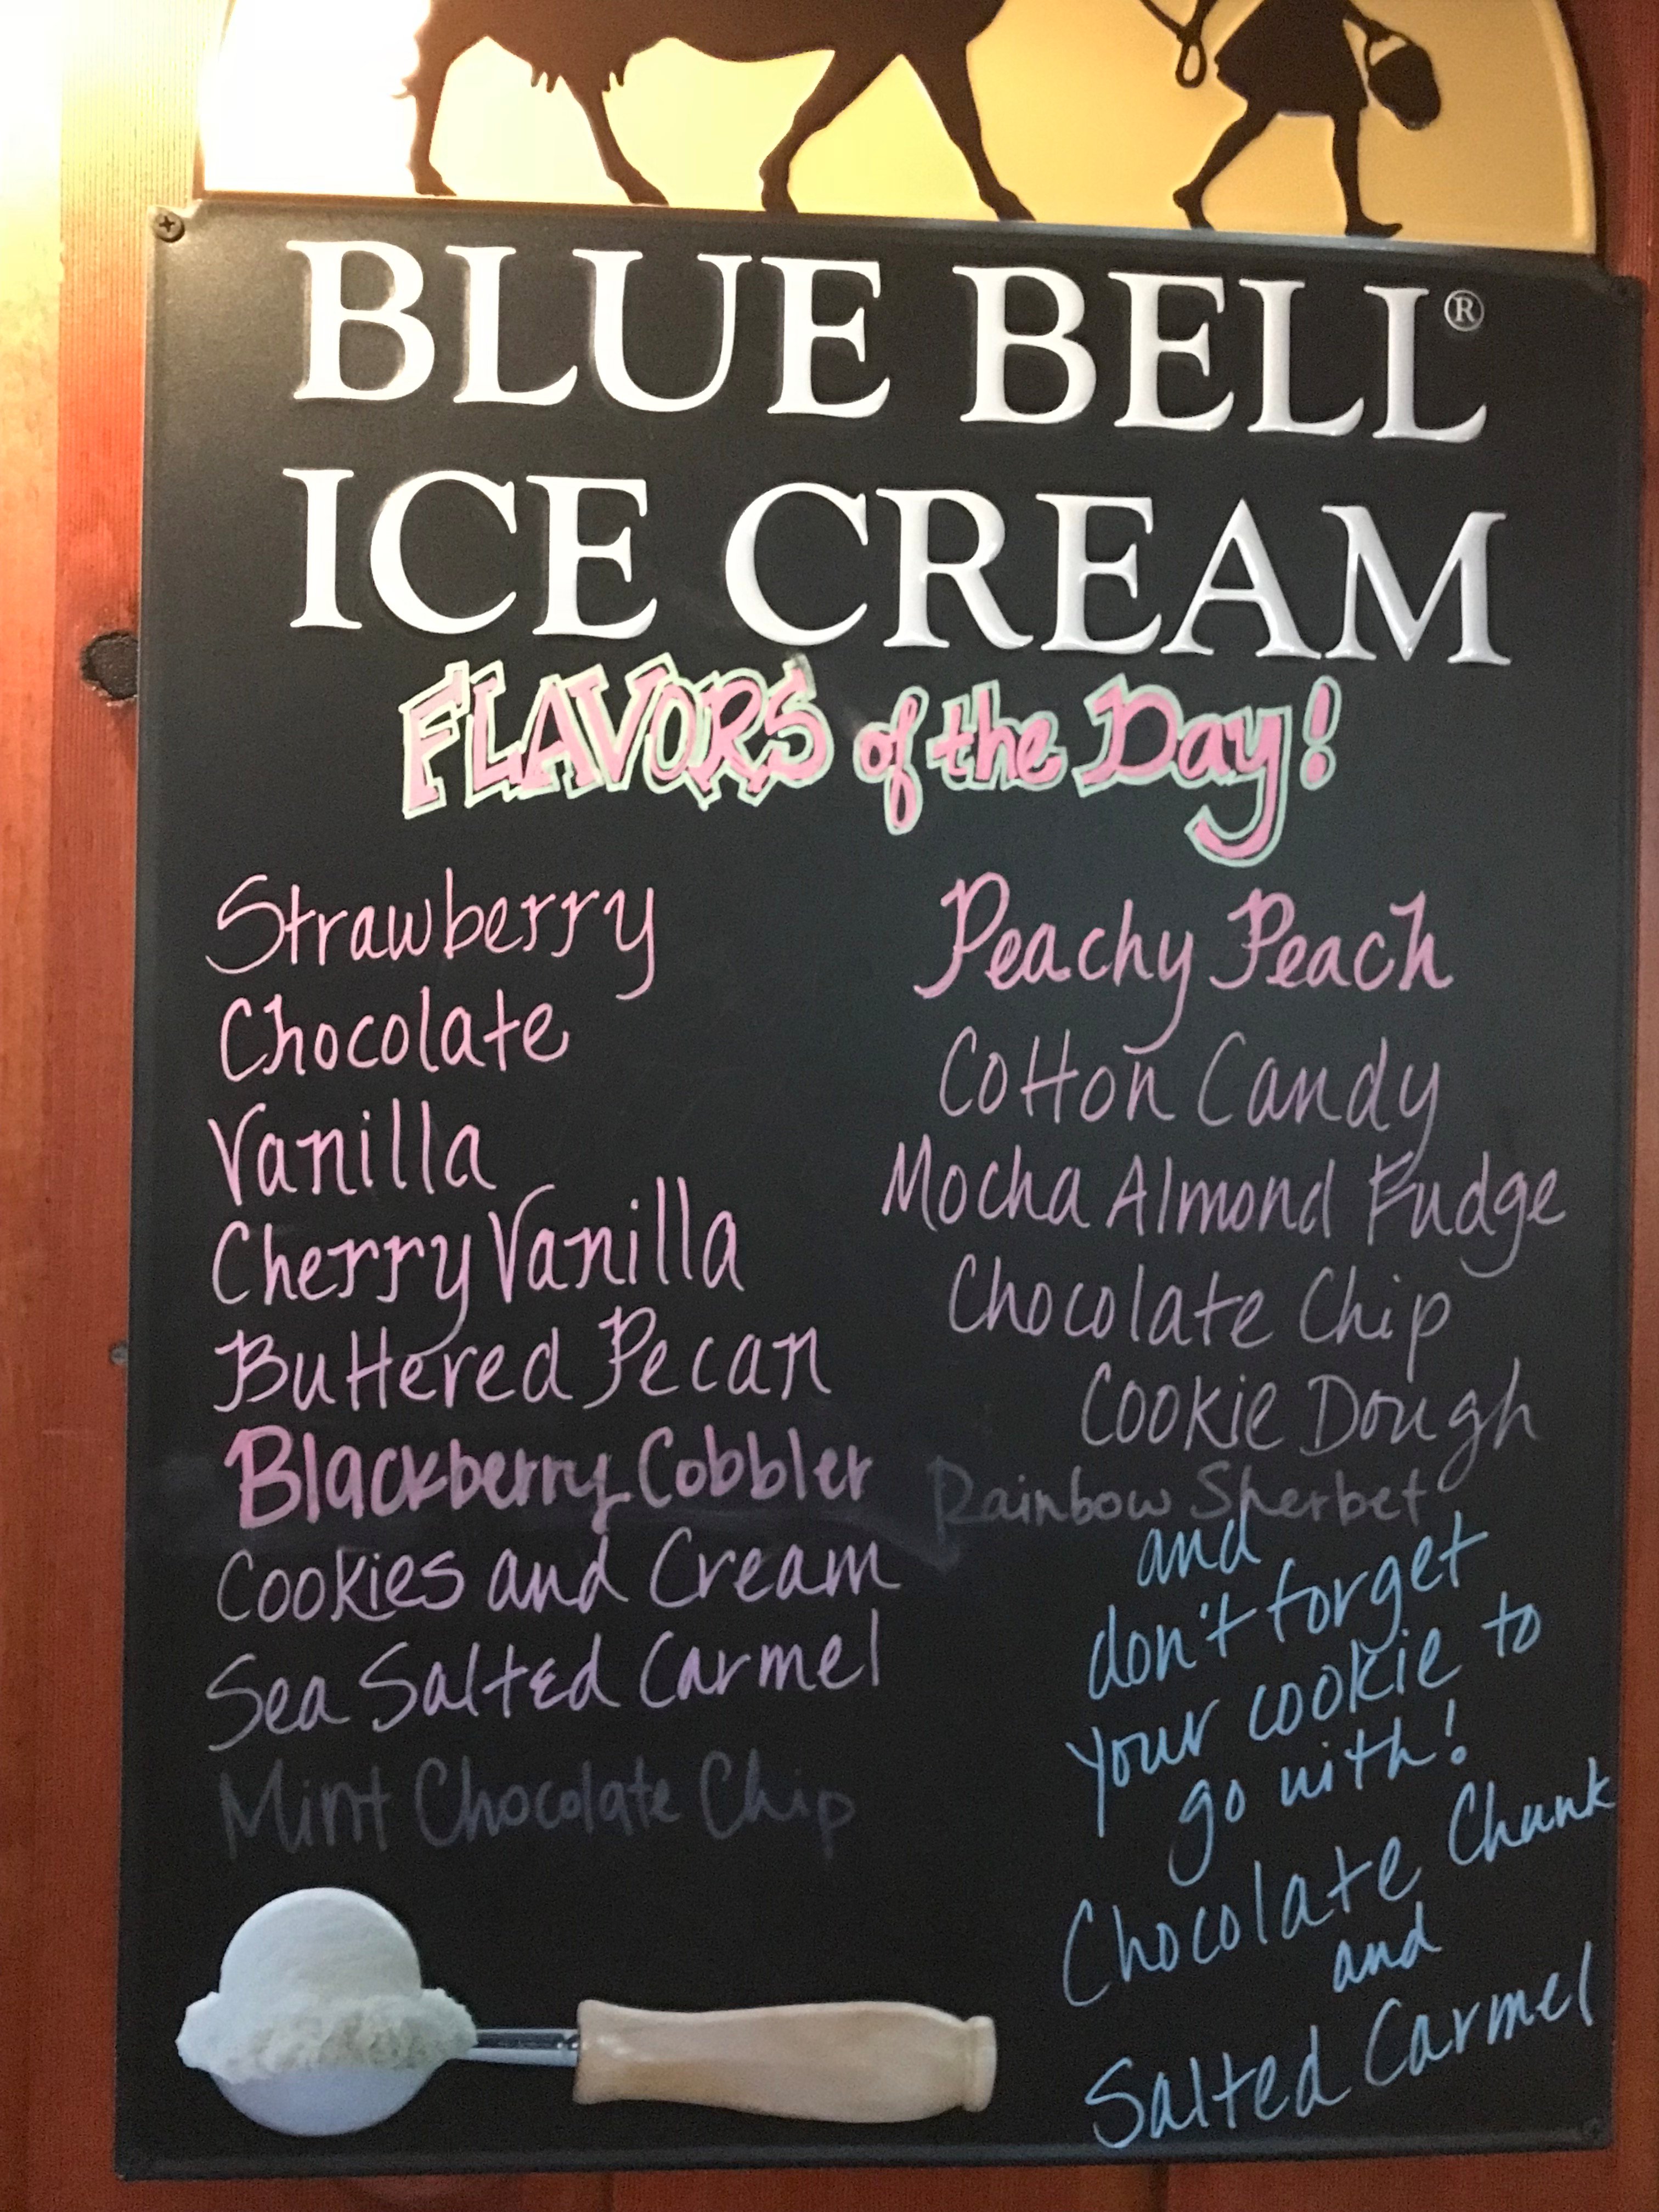 BLUE BELL®
ICE CREAM
FLAVORS of the Day!
Strawberry
Chocolate
Vanilla
Cherry Vanilla
Buttered Pecan
Blackberry Cobbler
Cookies and Cream
Sea Salted Carmel
Mint Chocolate Chip
Peachy Peach
Cotton Candy
Mocha Almond Fudge
Chocolate Chip
Cookie Dough
Rainbow Sherbet
and
don't forget
your cookie to
go with!
Chocolate Chunk
and
Salted Carmel